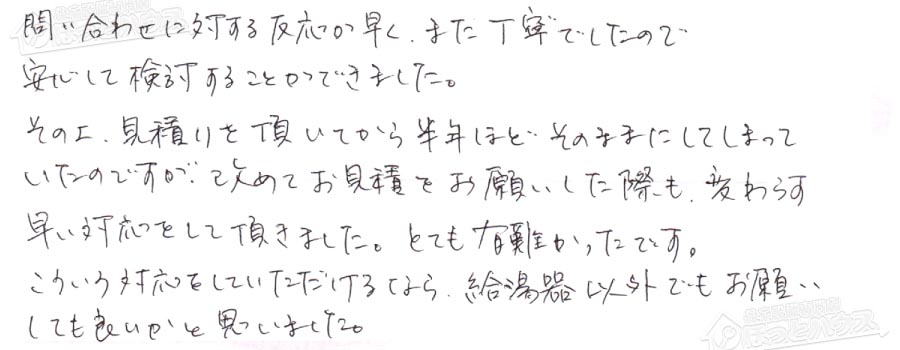 問い合わせに対する反応が早く、また丁寧でしたので
安心して検討することができました。
その上、見積りを頂いてから半年ほどそのままにしてしまって
いたのですが、改めてお見積をお願いした際も、変わらず
早い対応をして頂きました。とても有難かったです。
こういう対応をしていただけるなら、給湯器以外でもお願い
しても良いかと思いました。
ほっとハウス